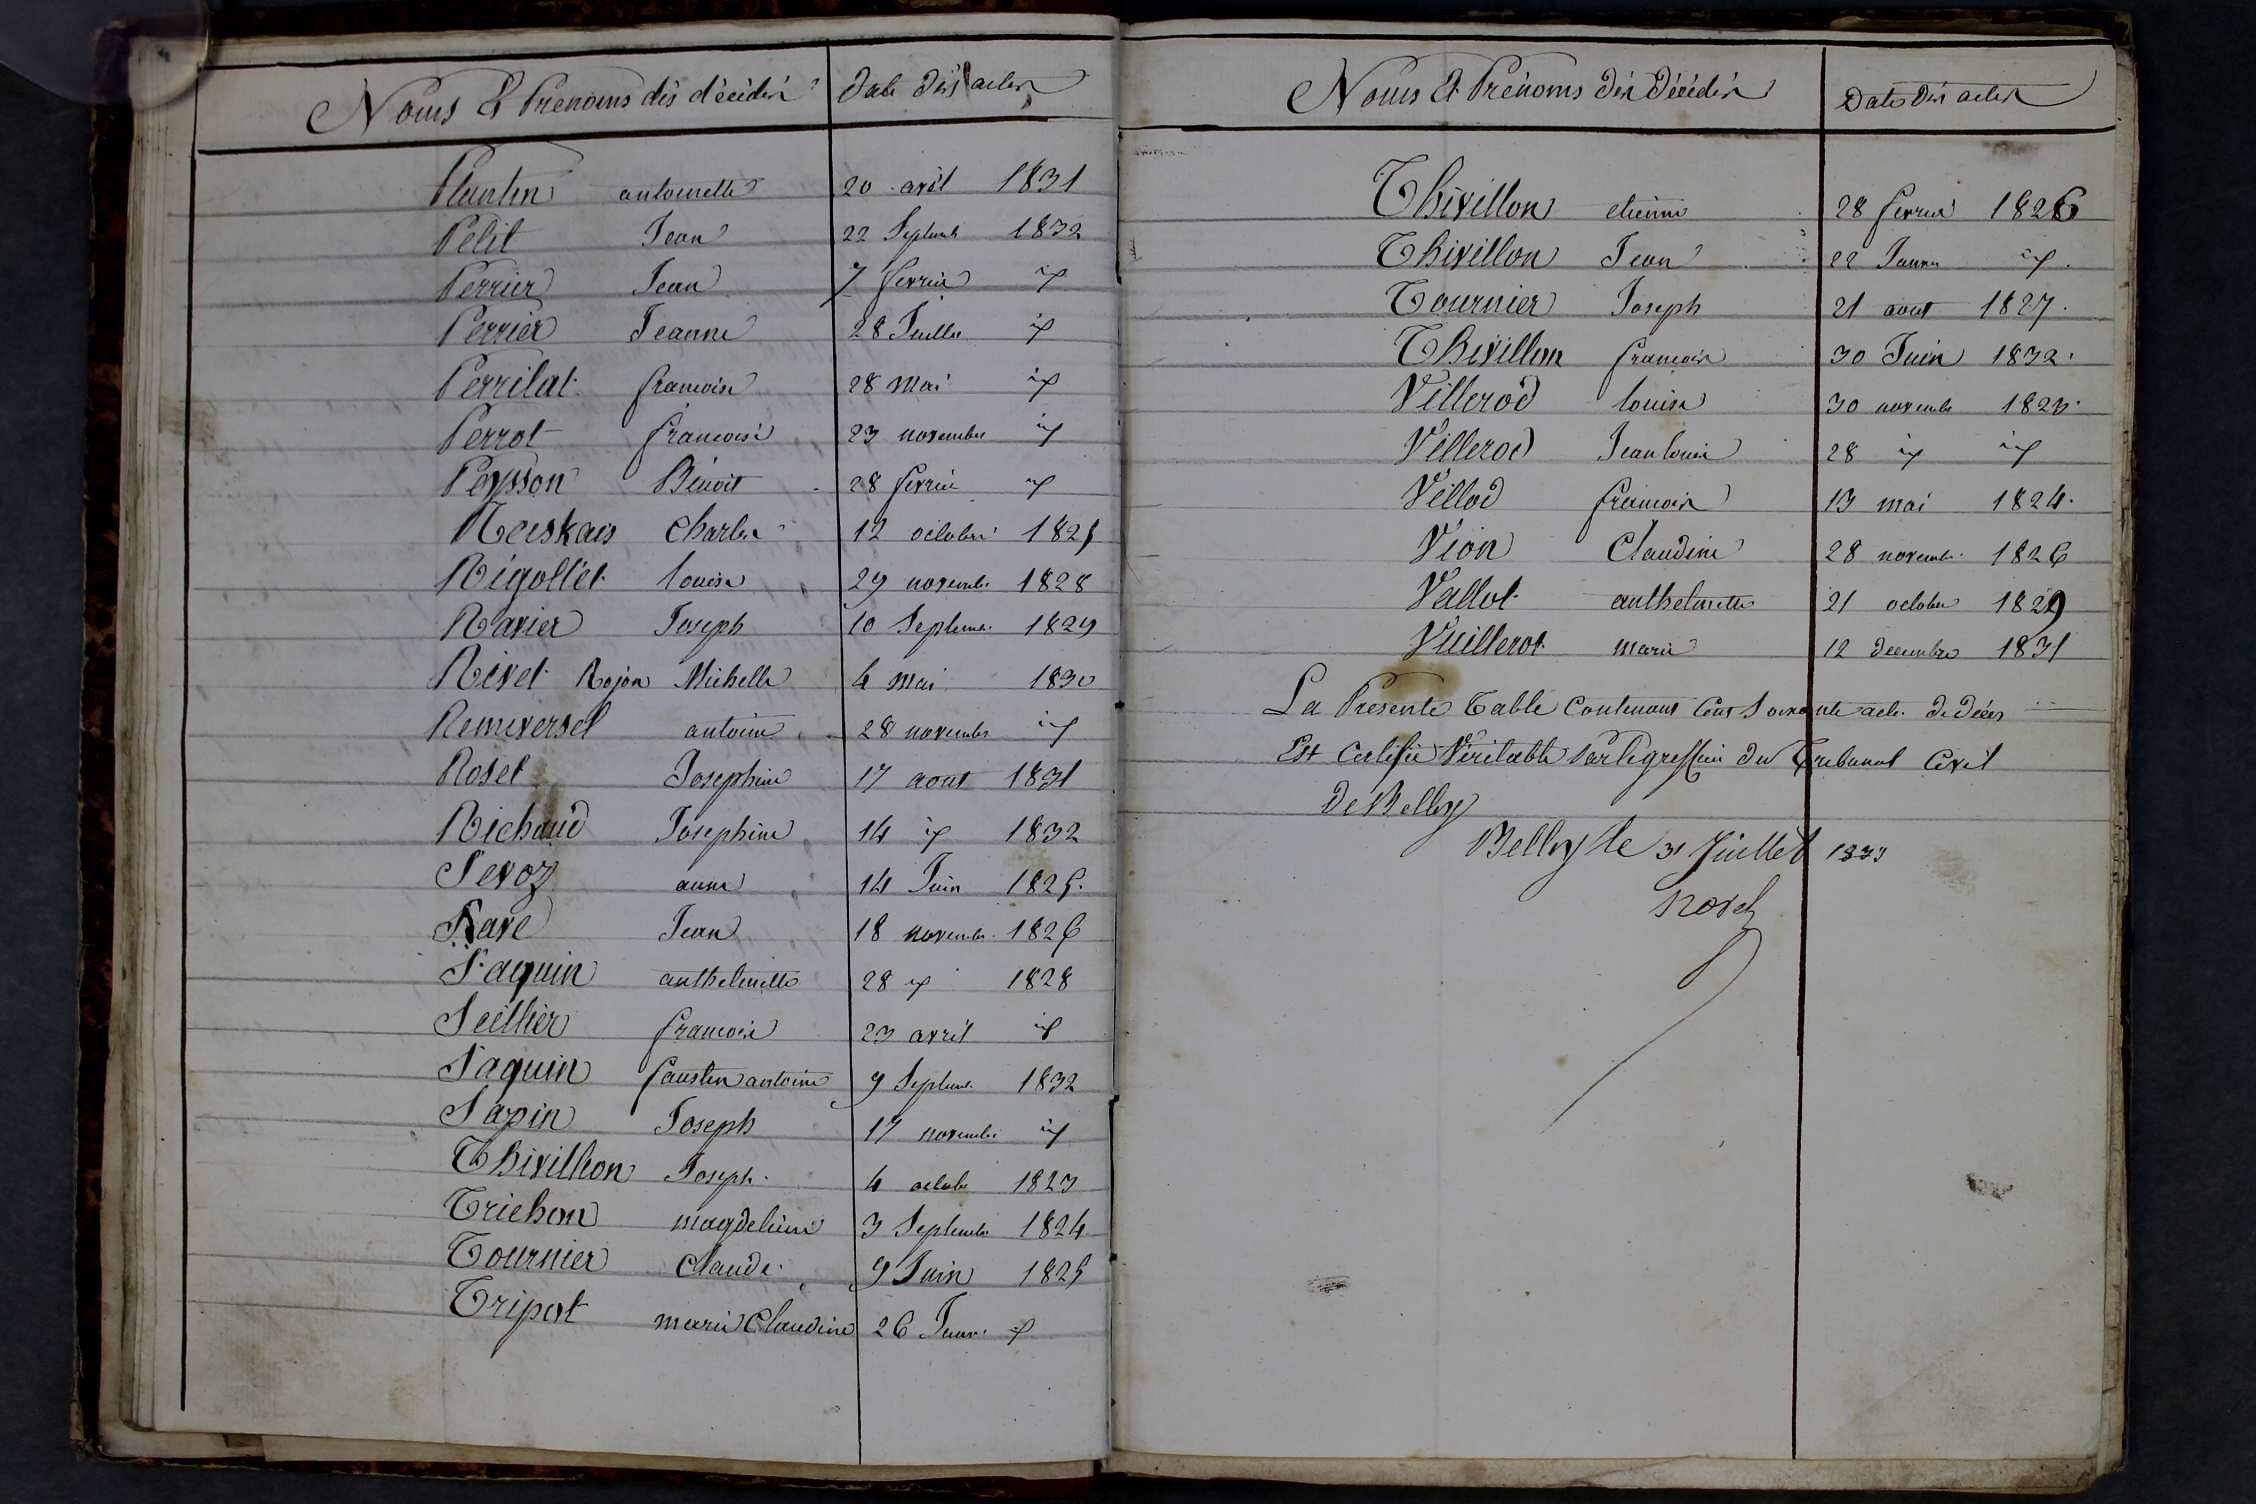 Noms & Prenoms des décédés Date des actes
Plantin antoinette 20 avril 1831
Petit Jean 22 Septemb 1832
Perrier Jean 7 fevrier id
Perrier Jeanne 28 Juillet id
Perrilat francoise 28 mai id
Perrot francoise 23 novembre id
Peysson Bénoit 28 fevrier id
charles 12 octobre 1825
Rigollet louise 29 novembre 1828
Ravier Joseph 10 Septemb. 1829
Rivet Rojon Michelle 4 mai 1830
antoine 28 novembre id
Roset Josephine 17 aout 1831
Richaud Josephine 14 id 1832
Sevoz anne 14 Juin 1825.
Save Jean 18 novemb. 1826
Saquin anthelmette 28 id 1828
Seillier francoise 23 avril id
Saquin faustin antoine 9 Septem. 1832
Sapin Joseph 17 novembre id
Thivillion Joseph 4 octobe 1823
Trichon magdeleine 3 Septembre 1824
Tournier Claude 9 Juin 1825
Tripot marie Claudine 26 Janv. id
Noms & Prénoms des Décédés Dates des actes
Thivillon etienne 28 fevrier 1826
Thivillon Jean 22 Janvier id.
Tournier Joseph 21 aout 1827.
Thivillon francoise 30 Juin 1832.
Villerod louise 30 novembre 1823.
Villerod Jean louis 28 id id
Villod francois 13 mai 1824.
Vion Claudine 28 novemb. 1826
Vallot anthelmette 21 octobre 1829
Vuillerot marie 12 decembre 1831
La Presente Table Contenant Cent Soixante acte de Décès
Est Certifiée Véritable Par le greffier du Tribunal Civil
De Belley
Belley le 31 Juillet 1833